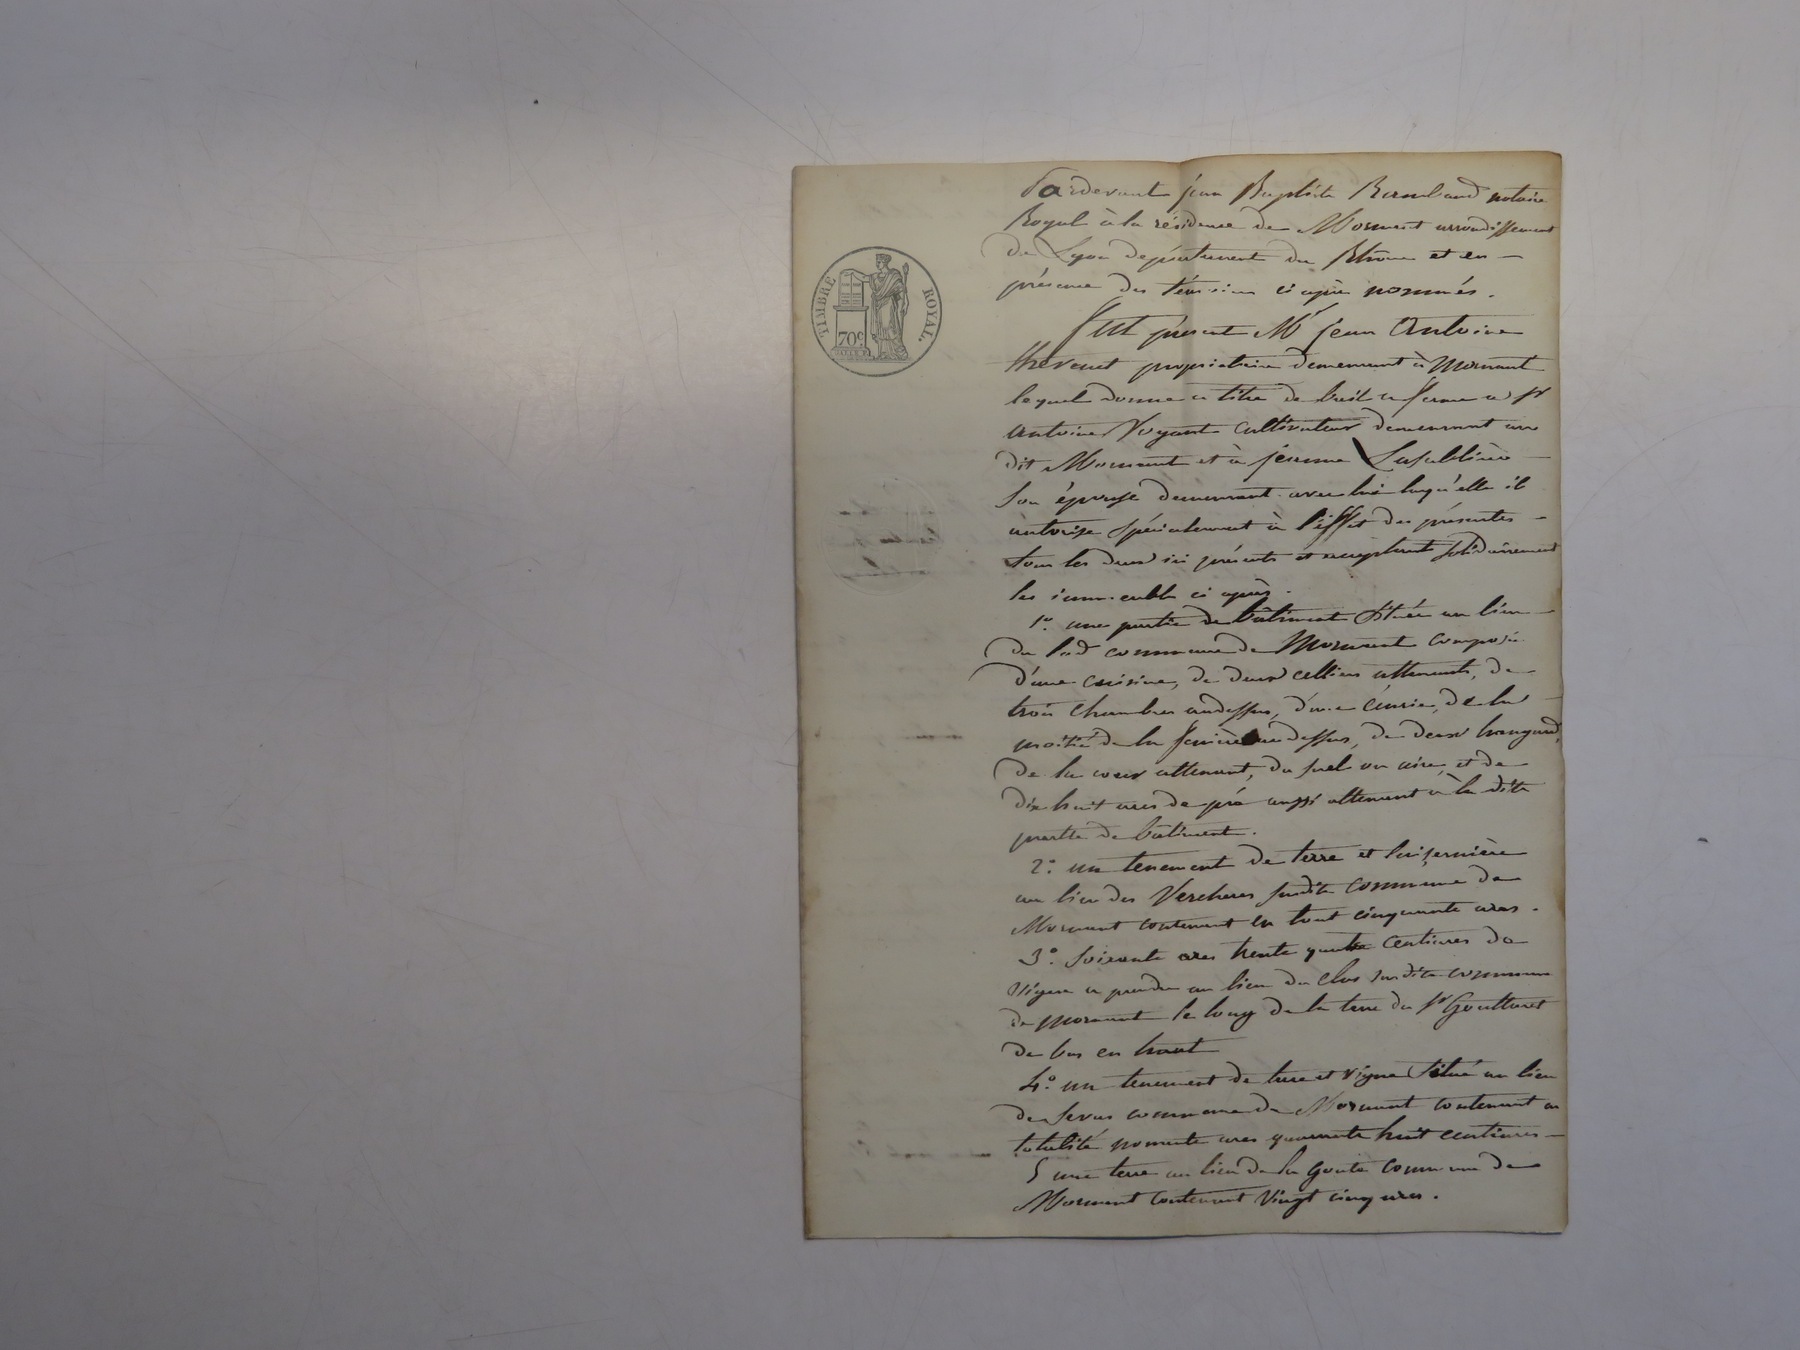 TIMBRE ROYAL.
70c
Pardevant jean Baptiste Rambaud notaire
Royal à la résidence de Mornant arrondissement
de Lyon département du Rhone et en
présence des témoins ci après nommés.
Fut présent Mr jean Antoine
thevenet propriétaire demeurant à Mornant
lequel donne a titre de bail a ferme a sr
antoine Voyant cultivateur demeurant au
dit Mornant et à jeanne Lasablière
son épouse demeurant avec lui laqu'elle il
autorise spécialement à l'effet des présentes
tous les deux ici présents et acceptant solidairement
les immeuble ci après.
1º. une partie de bâtiment située au lieu
de lad commune de Mornant composé
d'une cuisine, de deux celliers attenants, de
trois chambres audessus, d'une écurie, de la
moitié de la fenière audessus, de deux hangard,
de la cour attenant, du suel ou aire, et de
dix huit ares de pré aussi attenant à la dite
partie de bâtiment.
2º. un tenement de terre et luzernière
au lieu des Vercheres susdite commune de
Mornant contenant en tout cinquante ares.
3º. soixante ares trente quatre centiares de
vigne a prendre au lieu du clos susdite commune
de mornant le long de la terre du sr Goutturet
de bas en haut
4º. un tenement de terre et vigne situé au lieu
de commune de Mornant contenant en
totalité nonante ares quarante huit centiares
5 une terre au lieu de la Goute commune de
Mornant contenant vingt cinq ares.